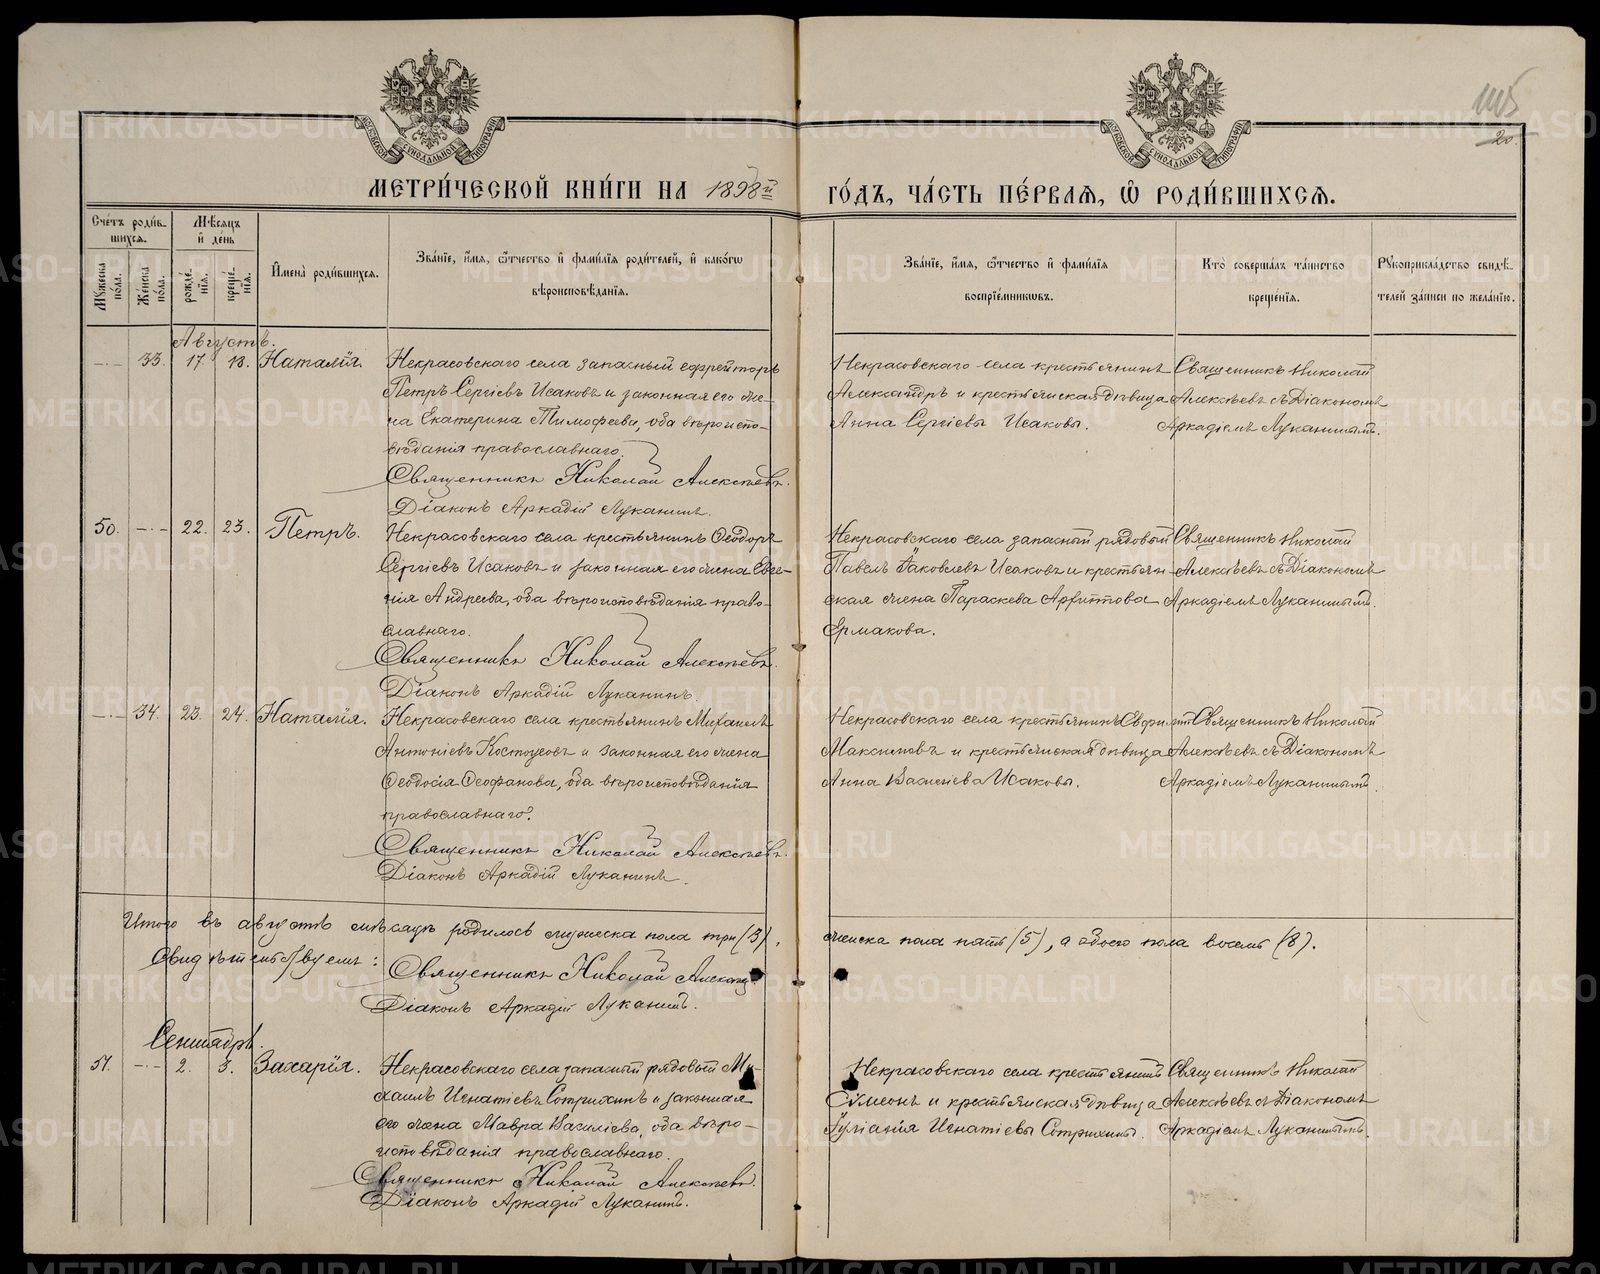 115
20.
МЕТРИ́ЧЕСКОЙ КНИ́ГИ НА 1898й ГО́ДЪ, ЧА́СТЬ ПЕ́РВАѦ, Ѿ РОДИ́ВШИХСѦ.
Сче́тъ роди́в-
шихсѧ.
Мѣ́сѧцъ
и҆ де́нь
Мꙋ́жеска по́ла.
Же́нска по́ла.
рожде́нїѧ.
креще́нїѧ.
И҆мена̀ роди́вшихсѧ.
Зва́нїе, и҆́мѧ, ѻ҆́тчество и҆ фами́лїѧ роди́телей, и҆ како́гѡ
вѣроисповѣ́данїѧ.
Зва́нїе, и҆́мѧ, ѻ҆́тчество и҆ фами́лїѧ
воспрїе́мникѡвъ.
Кто̀ соверша́лъ та́инство
креще́нїѧ.
Рꙋкоприкла́дство свидѣ́-
телей за́писи по жела́нїю.
Августъ.
-·- 33. 17. 18. Наталія.
Некрасовскаго села запасный ефрейторъ
Петръ Сергіевъ Исаковъ и законная его же-
на Екатерина Тимофеева, оба вѣроиспо-
вѣданія православнаго.
Священникъ Николай Алексѣевъ.
Діаконъ Аркадій Луканинъ.
Некрасовскаго села крестьянинъ
Александръ и крестьянская дѣвица
Анна Сергіевы Исаковы.
Священникъ Николай
Алексѣевъ съ Діакономъ
Аркадіемъ Луканинымъ.
50. -·- 22. 23. Петръ.
Некрасовскаго села крестьянинъ Ѳеодоръ
Сергіевъ Исаковъ и законная его жена Евге-
нія Андреева, оба вѣроисповѣданія право-
славнаго.
Священникъ Николай Алексѣевъ.
Діаконъ Аркадій Луканинъ.
Некрасовскаго села запасный рядовый
Павелъ Яковлевъ Исаковъ и крестьян-
ская жена Параскева
Ермакова.
Священникъ Николай
Алексѣевъ съ Діакономъ
Аркадіемъ Луканинымъ.
-·- 34. 23. 24. Наталія.
Некрасовскаго села крестьянинъ Михаилъ
Антоніевъ Костоусовъ и законная его жена
Ѳеодосія Ѳеофанова, оба вѣроисповѣданія
православнаго.
Священникъ Николай Алексѣевъ.
Діаконъ Аркадій Луканинъ.
Некрасовскаго села крестьянинъ
Максимовъ и крестьянская дѣвица
Анна Василіева Исаковы.
Священникъ Николай
Алексѣевъ съ Діакономъ
Аркадіемъ Луканинымъ.
Итого въ августѣ мѣсяцѣ родилось мужеска пола три (3), женска пола пять (5), а обоего пола восемь (8).
Свидѣтельствуемъ:
Священникъ Николай
Діаконъ Аркадій Луканинъ.
Сентябрь.
51. -·- 2. 3. Захарія.
Некрасовскаго села запасный рядовый Ми-
хаилъ Игнатіевъ Сотрихинъ и законная
его жена Мавра Василіева, оба вѣро-
исповѣданія православнаго.
Священникъ Николай Алексѣевъ.
Діаконъ Аркадій Луканинъ.
Некрасовскаго села крестьянинъ
Сѵмеонъ и крестьянская дѣвица
Іуліанія Игнатіевы Сотрихины.
Священникъ Николай
Алексѣевъ съ Діакономъ
Аркадіемъ Луканинымъ.
METRIKI.GASO-URAL.RU